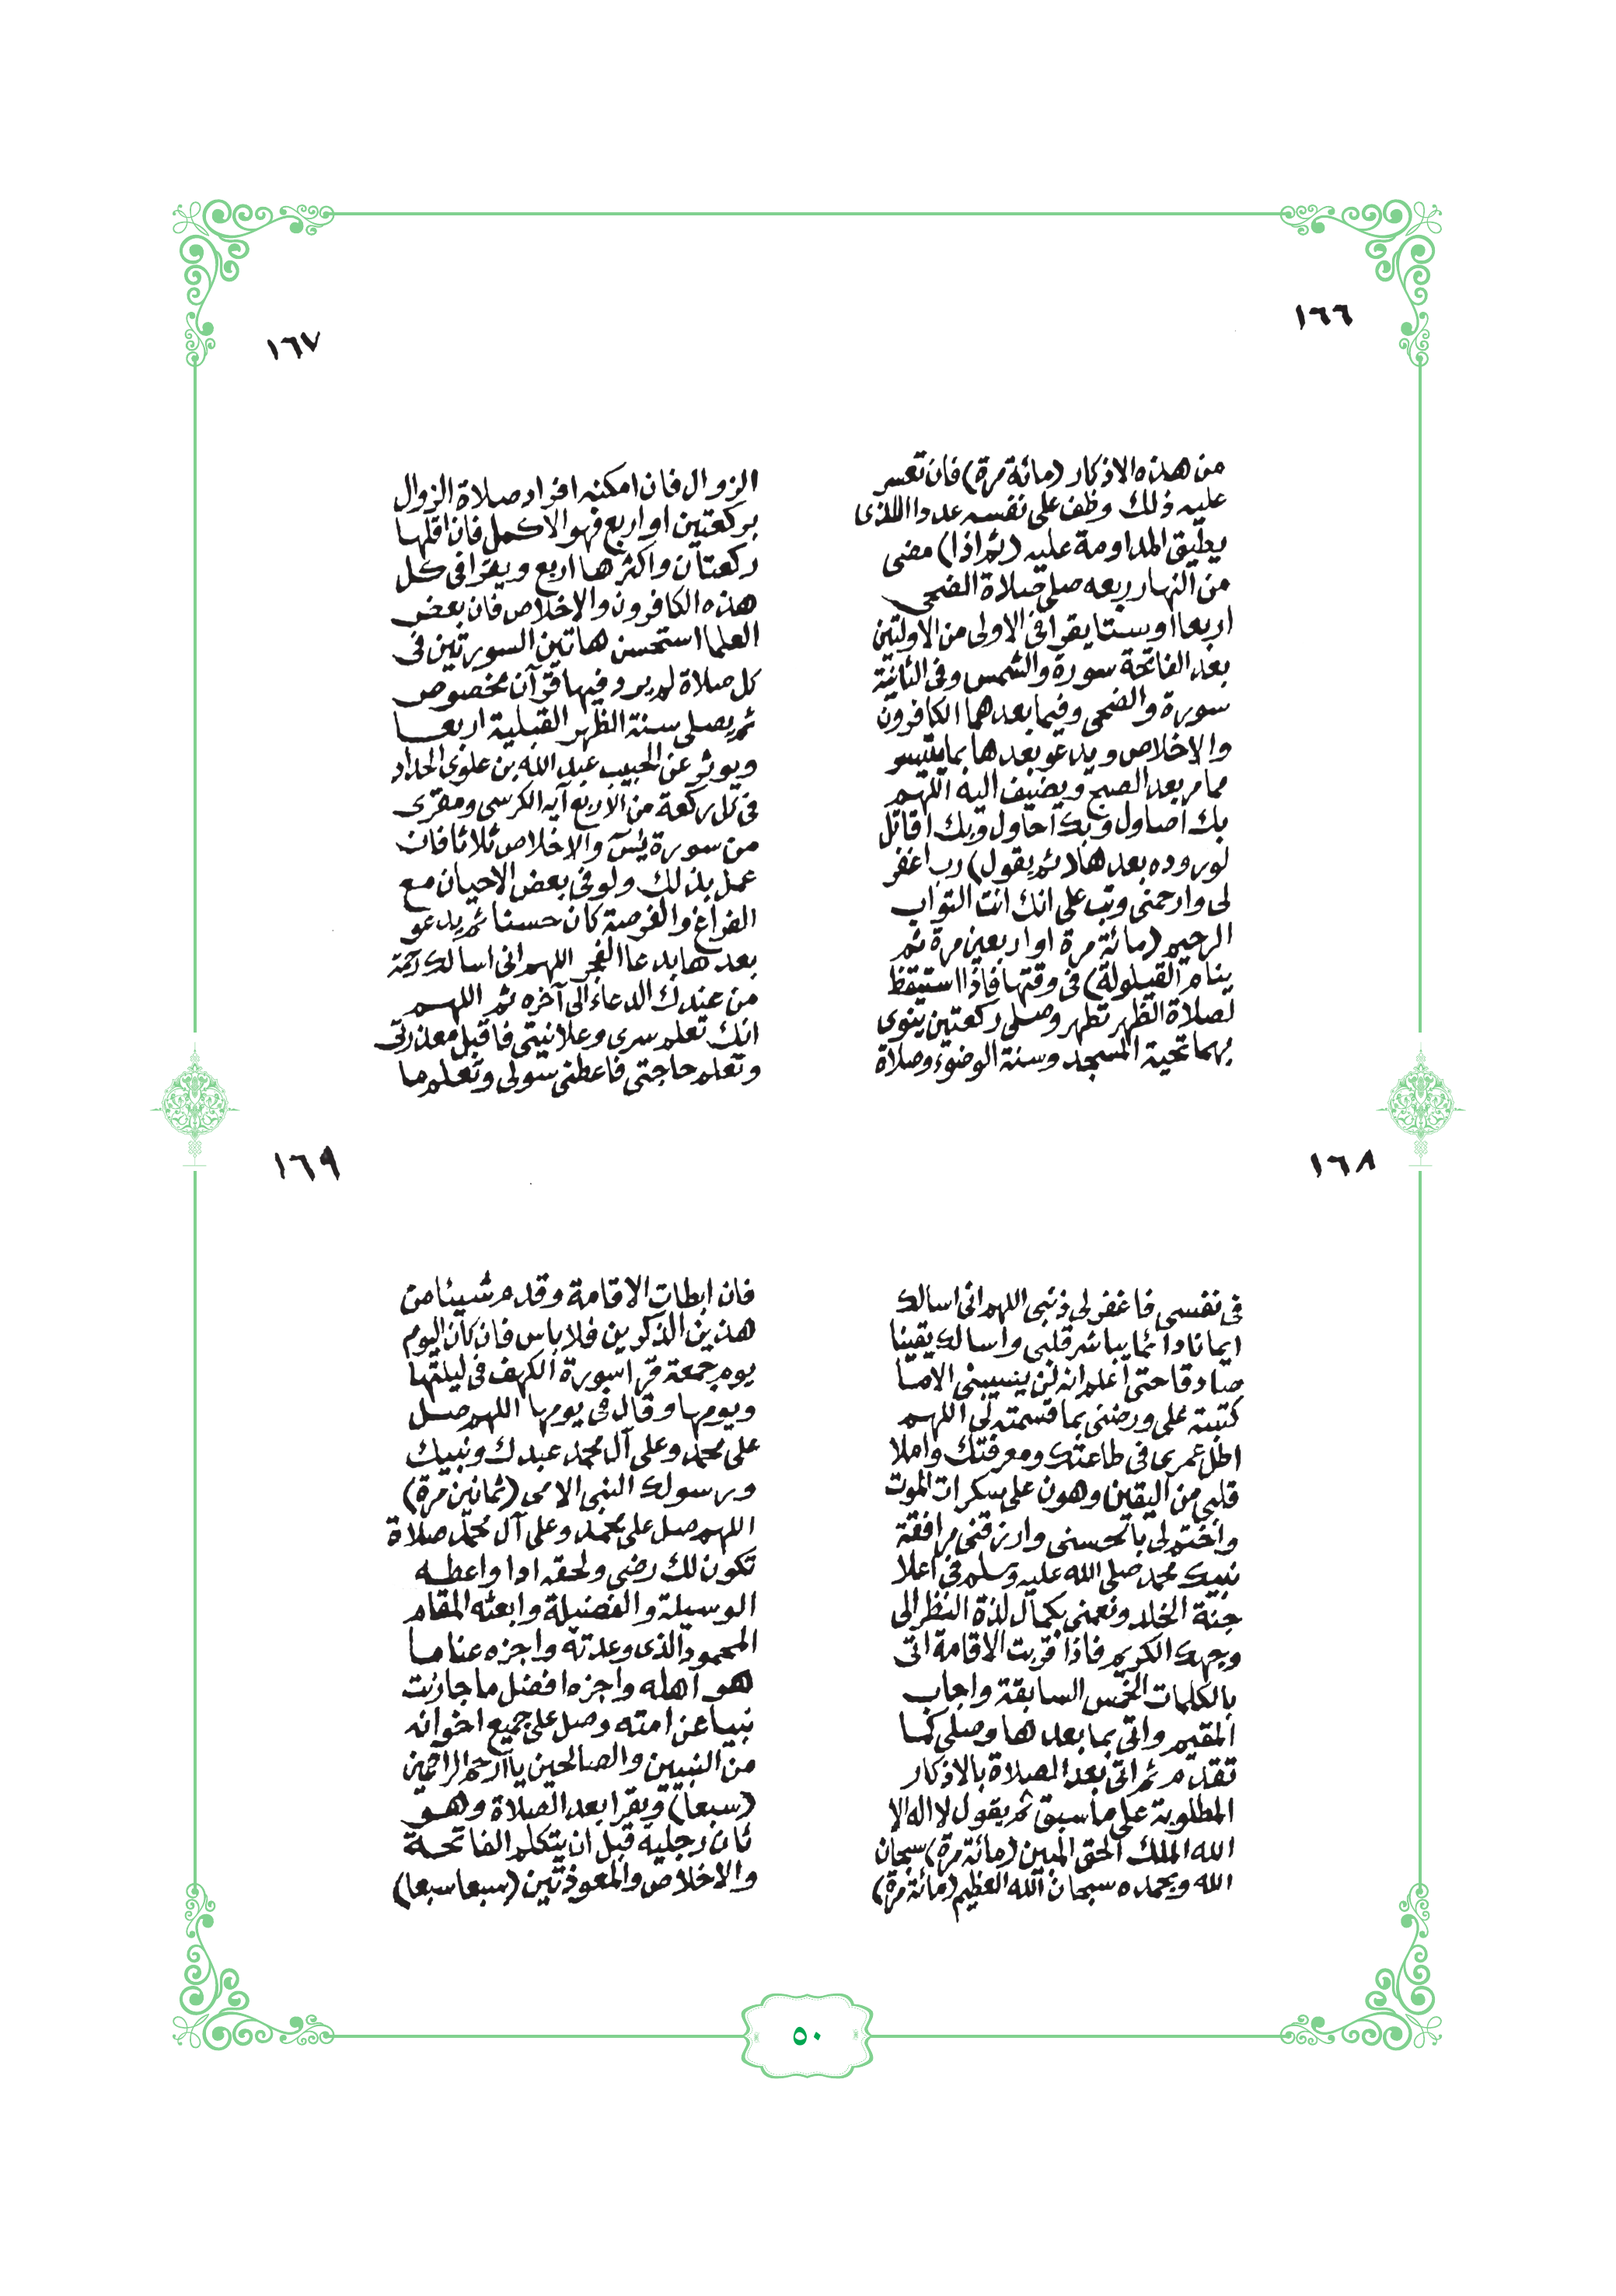 ١٦٦
من هذه الاذكار (مائة مرة) فان تعسر
عليه ذلك وظف على نفسه عددا اللذى
يطيق المداومة عليه (ثم اذا) مضى
من النهار ربعه صلى صلاة الضحى
اربعا اوستا يقرا فى الاولى من الاولتين
بعد الفاتحة سورة والشمس وفى الثانية
سورة والضحى وفيما بعدهما الكافرون
والاخلاص ويدعو بعدها بما يتيسر
مما مر بعد الصبح ويضيف اليه اللهم
بك اصاول وبك احاول وبك اقاتل
لوروده بعدها (ثم يقول) رب اغفر
لى وارحمنى وتب على انك انت التواب
الرحيم (مائة مرة او اربعين مرة ثم
ينام القيلولة) فى وقتها فاذا استيقظ
لصلاة الظهر تطهر وصلى ركعتين ينوى
بهما تحية المسجد وسنة الوضوء وصلاة
١٦٧
الزوال فان امكنه افراد صلاة الزوال
بركعتين او اربع فهو الاكمل فان اقلها
ركعتان واكثرها اربع ويقرا فى كل
هذه الكافرون والاخلاص فان بعض
العلما استحسن هاتين السورتين فى
كل صلاة لم يرد فيها قرآن مخصوص
ثم يصلى سنة الظهر القبلية اربعا
ويوثر عن الحبيب عبد الله بن علوى الحداد
فى كل ركعة من الاربع آية الكرسى ومقرى
من سورة يس والاخلاص ثلاثا فان
عمل بذلك ولو فى بعض الاحيان مع
الفراغ والفرصة كان حسنا ثم يدعو
بعدها بدعا الفجر اللهم انى اسالك رحمة
من عندك الدعاء الى آخره ثم اللهم
انك تعلم سرى وعلانيتى فاقبل معذرتى
وتعلم حاجتى فاعطنى سولى وتعلم ما
١٦٨
فى نفسى فاغفر لى ذنبى اللهم انى اسالك
ايمانا دائما يباشر قلبى واسالك يقينا
صادقا حتى اعلم انه لن يصيبنى الا ما
كتبته على ورضنى بما قسمته لى اللهم
اطل عمرى فى طاعتك ومعرفتك واملا
قلبى من اليقين وهون على سكرات الموت
واختم لى بالحسنى وارزقنى مرافقة
نبيك محمد صلى الله عليه وسلم فى اعلا
جنة الخلد ونعمنى بكمال لذة النظر الى
وجهك الكريم فاذا قربت الاقامة اتى
بالكلمات الخمس السابقة واجاب
المقيم واتى بما بعدها وصلى كما
تقدم ثم اتى بعد الصلاة بالاذكار
المطلوبة على ما سبق ثم يقول لا اله الا
الله الملك الحق المبين (مائة مرة) سبحان
الله وبحمده سبحان الله العظيم (مائة مرة)
١٦٩
فان ابطات الاقامة وقدم شيئا من
هذين الذكرين فلا باس فان كان اليوم
يوم جمعة قرا سورة الكهف فى ليلتها
ويومها وقال فى يومها اللهم صل
على محمد وعلى آل محمد عبدك ونبيك
ورسولك النبى الامى (ثمانين مرة)
اللهم صل على محمد وعلى آل محمد صلاة
تكون لك رضى ولحقه ادا واعطه
الوسيلة والفضيلة وابعثه المقام
المحمود الذى وعدته واجزه عنا ما
هو اهله واجزه افضل ما جازيت
نبيا عن امته وصل على جميع اخوانه
من النبيين والصالحين يا ارحم الراحمين
(سبعا) ويقرا بعد الصلاة وهو
ثان رجليه قبل ان يتكلم الفاتحة
والاخلاص والمعوذتين (سبعا سبعا)
٥٠